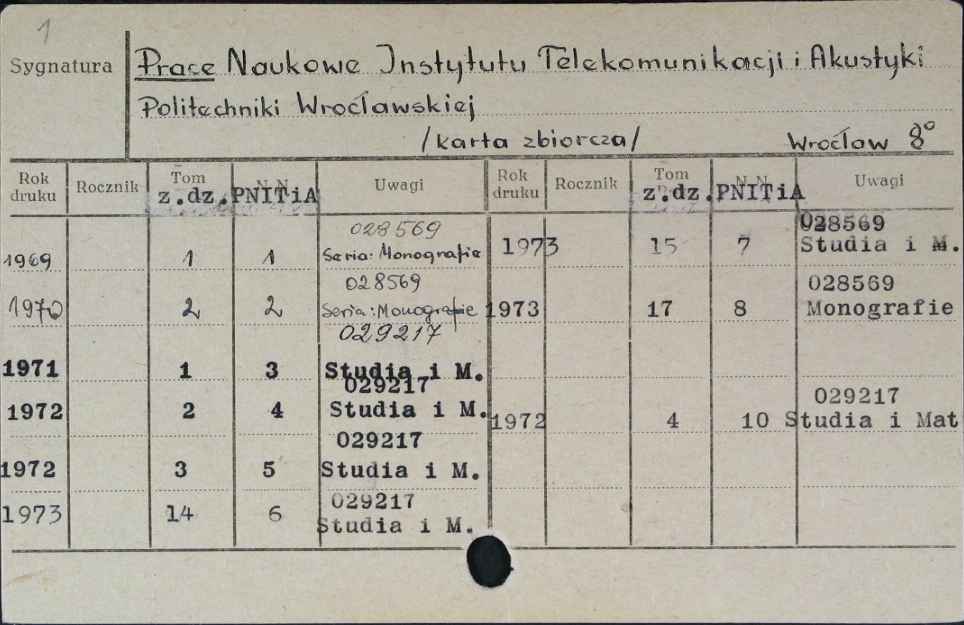 1
Sygnatura
Prace Naukowe Instytutu Telekomunikacji i Akustyki
Politechniki Wrocławskiej
/karta zbiorcza/ Wrocław 8°
Rok druku Rocznik Tom z.dz. PNITiA Uwagi Rok druku Rocznik Tom z.dz. PNITiA Uwagi
028569 028569
1969 1 1 Seria: Monografie 1973 15 7 Studia i M.
028569 028569
1970 2 2 Seria: Monografie 1973 17 8 Monografie
029217
1971 1 3 Studia i M.
029217 029217
1972 2 4 Studia i M. 1972 4 10 Studia i Mat
029217
1972 3 5 Studia i M.
029217
1973 14 6 Studia i M.